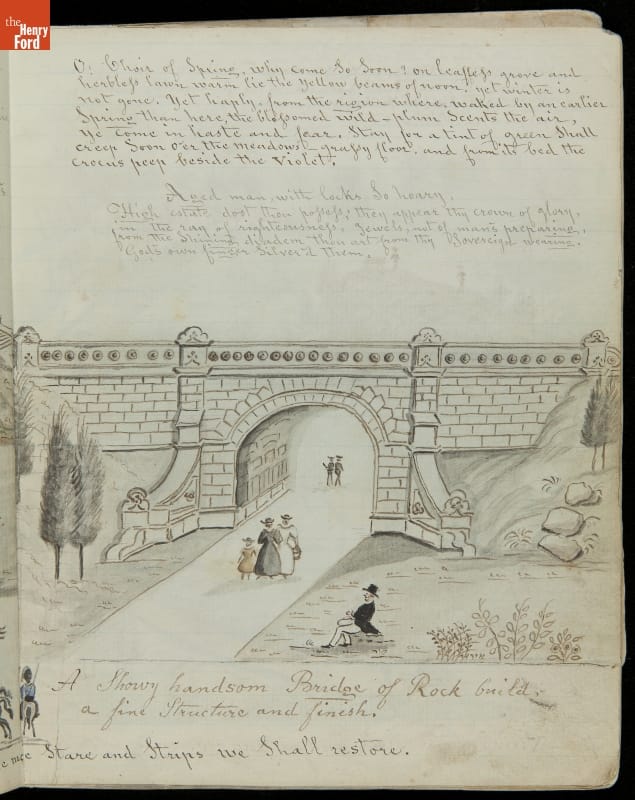 the
Henry
Ford
O! Choir of Spring, why come So Soon? on leafless grove and
herbless lawn warm lie the yellow beams of noon. yet winter is
not gone. Yet haply, from the region where, waked by an earlier
Spring than here, the blossomed wild-plum Scents the air,
ye come in haste and fear. Stay for a tint of green Shall
creep Soon O'er the meadows grassy floor. and from its bed the
crocus peep beside the Violet.
Aged man, with locks So hoary.
High estate dost thou possess, they appear thy crown of glory,
in the ray of righteousness. Jewels, not of man's preparing,
from the Shining diadem thou art from thy Sovereign wearing.
Gods own finger Silver'd them.
A Showy handsom Bridge of Rock build.
a fine Structure and finish.
Stare and Strips we Shall restore.